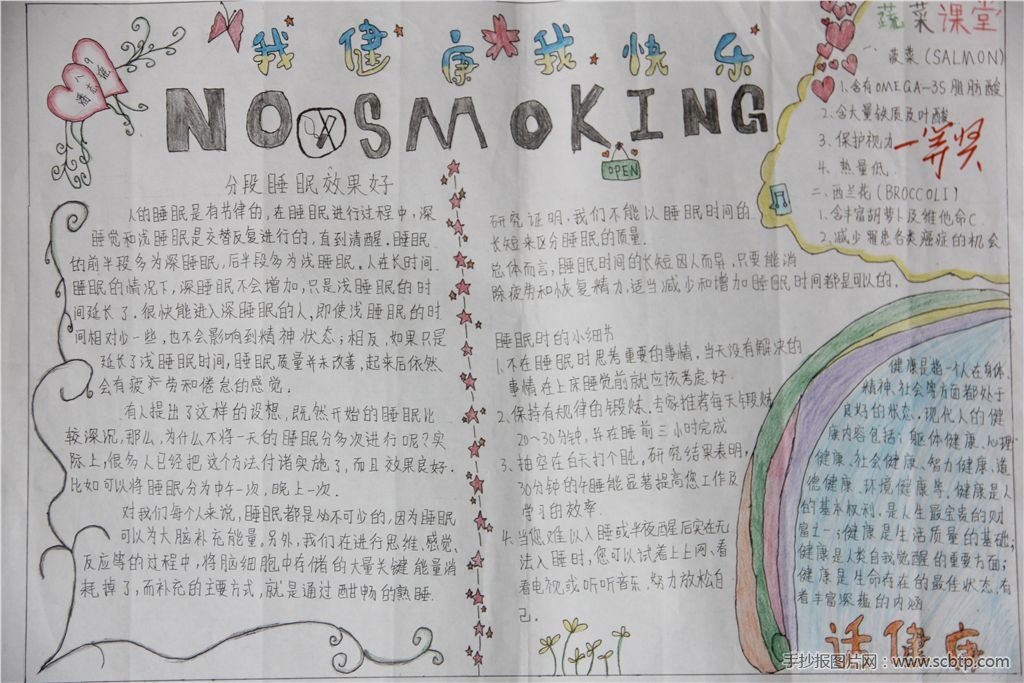 我健康我快乐
NO SMOKING
OPEN
分段睡眠效果好
人的睡眠是有节律的,在睡眠进行过程中,深
睡觉和浅睡眠是交替反复进行的,直到清醒.睡眠
的前半段多为深睡眠,后半段多为浅睡眠。人在长时间
睡眠的情况下,深睡眠不会增加,只是浅睡眠的时
间延长了.很快能进入深睡眠的人,即使浅睡眠的时
间相对少一些,也不会影响到精神状态;相反,如果只是
延长了浅睡眠时间,睡眠质量并未改善,起来后依然
会有疲劳和倦怠的感觉.
有人提出了这样的设想,既然开始的睡眠比
较深沉,那么,为什么不将一天的睡眠分多次进行呢?实
际上,很多人已经把这个方法付诸实施了,而且效果良好.
比如可以将睡眠分为中午一次,晚上一次.
对我们每个人来说,睡眠都是必不可少的,因为睡眠
可以为大脑补充能量.另外,我们在进行思维、感觉、
反应等的过程中,将脑细胞中存储的大量关键能量消
耗掉了,而补充的主要方式,就是通过酣畅的熟睡.
研究证明,我们不能以睡眠时间的
长短来区分睡眠的质量.
总体而言,睡眠时间的长短因人而异,只要能消
除疲劳和恢复精力,适当减少和增加睡眠时间都是可以的.
睡眠时的小细节
1.不在睡眠时思考重要的事情,当天没有解决的
事情在上床睡觉前就应该考虑好.
2、保持有规律的锻炼.专家推荐每天锻炼
20~30分钟,并在睡前三小时完成
3、抽空在白天打个盹,研究结果表明,
30分钟的午睡能显著提高您工作及
学习的效率.
4.当您难以入睡或半夜醒后实在无
法入睡时,您可以试着上上网、看
看电视或听听音乐,努力放松自
己.
蔬菜课堂
菠菜(SALMON)
1.含有OMEGA-3S脂肪酸
2、含大量铁质及叶酸
3.保护视力
4.热量低.
一等奖
二、西兰花(BROCCOLI)
1.含丰富胡萝卜及维他命C.
2.减少罹患各类癌症的机会
健康是指一个人在身体
精神、社会等方面都处于
良好的状态.现代人的健
康内容包括;躯体健康、心理
健康、社会健康、智力健康、道
德健康、环境健康等。健康是人
的基本权利,是人生最宝贵的财
富之一;健康是生活质量的基础;
健康是人类自我觉醒的重要方面;
健康是生命存在的最佳状态,有
着丰富深蕴的内涵
话健康
手抄报图片网:www.scbtp.com